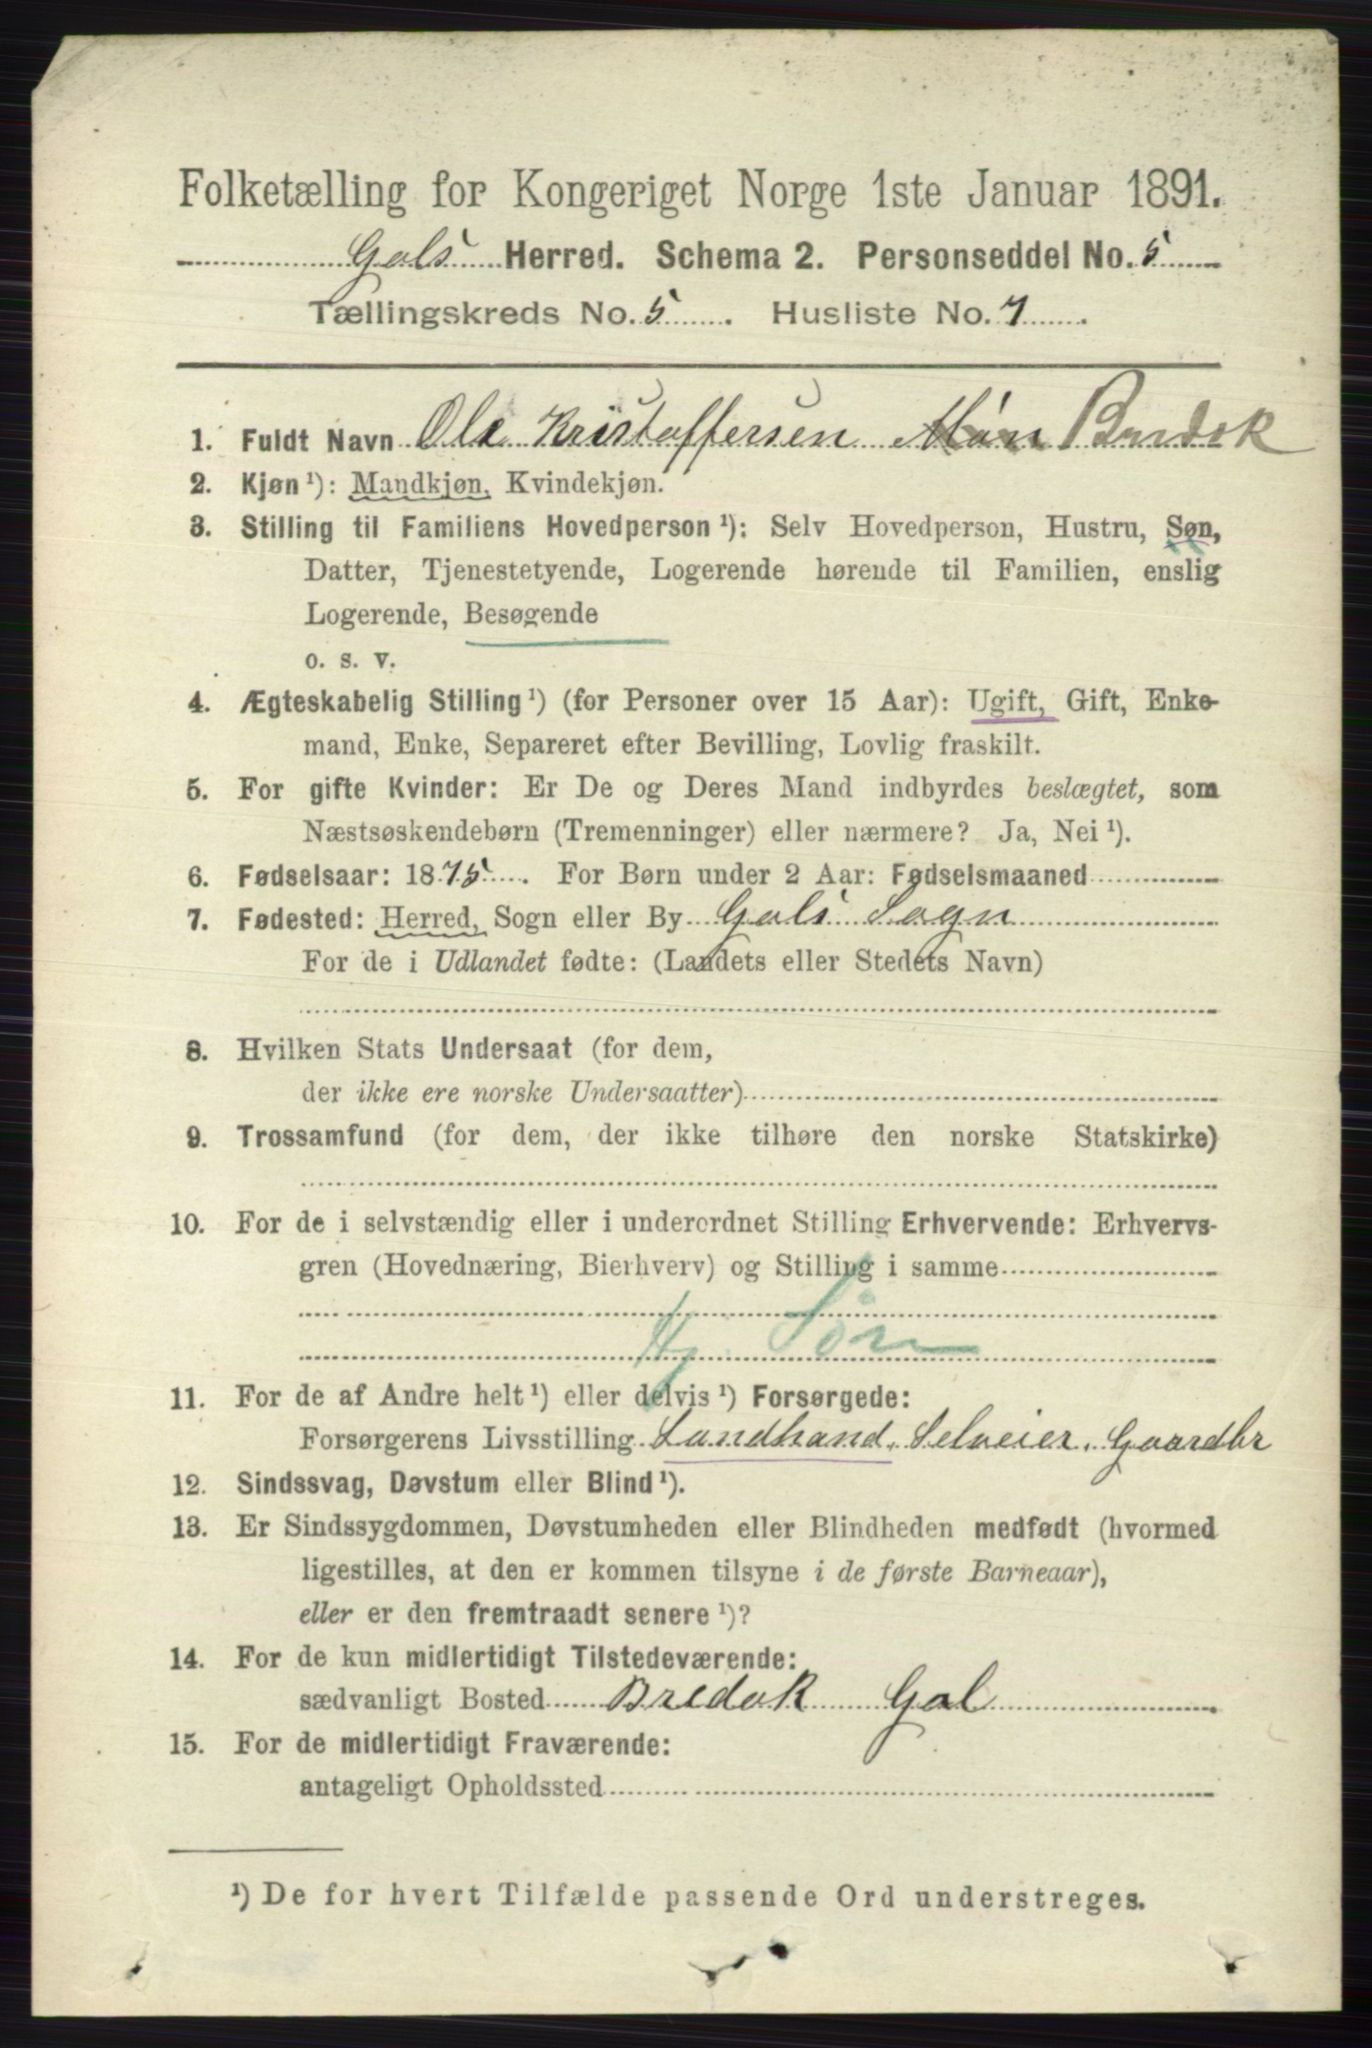 Folketælling for Kongeriget Norge 1ste Januar 1891.
Gols Herred. Schema 2. Personseddel No. 5
Tællingskreds No. 5 . Husliste No. 7 .
1. Fuldt Navn Ole Kristoffersen
2. Kjøn ¹): Mandkjøn, Kvindekjøn.
3. Stilling til Familiens Hovedperson ¹): Selv Hovedperson, Hustru, Søn,
Datter, Tjenestetyende, Logerende hørende til Familien, enslig
Logerende, Besøgende
o. s. v.
4. Ægteskabelig Stilling ¹) (for Personer over 15 Aar): Ugift, Gift, Enke-
mand, Enke, Separeret efter Bevilling, Lovlig fraskilt.
5. For gifte Kvinder: Er De og Deres Mand indbyrdes beslægtet, som
Næstsøskendebørn (Tremenninger) eller nærmere? Ja, Nei ¹).
6. Fødselsaar: 1875 . For Børn under 2 Aar: Fødselsmaaned
7. Fødested: Herred, Sogn eller By Gols Sogn
For de i Udlandet fødte: (Landets eller Stedets Navn)
8. Hvilken Stats Undersaat (for dem,
der ikke ere norske Undersaatter)
9. Trossamfund (for dem, der ikke tilhøre den norske Statskirke)
10. For de i selvstændig eller i underordnet Stilling Erhvervende: Erhvervs-
gren (Hovednæring, Bierhverv) og Stilling i samme
Hj. Søn
11. For de af Andre helt ¹) eller delvis ¹) Forsørgede:
Forsørgerens Livsstilling Landhand. Selveier. Gaardbr
12. Sindssvag, Døvstum eller Blind ¹).
13. Er Sindssygdommen, Døvstumheden eller Blindheden medfødt (hvormed
ligestilles, at den er kommen tilsyne i de første Barneaar),
eller er den fremtraadt senere ¹)?
14. For de kun midlertidigt Tilstedeværende:
sædvanligt Bosted Bredok Gol
15. For de midlertidigt Fraværende:
antageligt Opholdssted
¹) De for hvert Tilfælde passende Ord understreges.